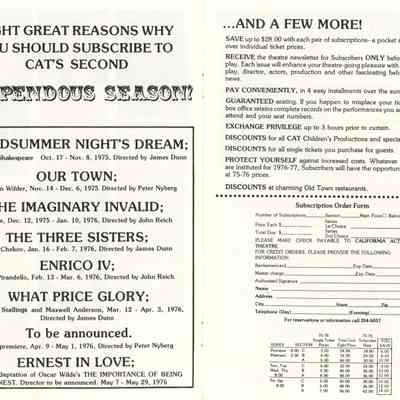 GHT GREAT REASONS WHY
U SHOULD SUBSCRIBE TO
CAT'S SECOND
PENDOUS SEASON!
DSUMMER NIGHT'S DREAM;
Shakespeare Oct. 17 - Nov. 8, 1975. Directed by James Dunn
OUR TOWN;
n Wilder, Nov. 14 - Dec. 6, 1975. Directed by Peter Nyberg
HE IMAGINARY INVALID;
e, Dec. 12, 1975 - Jan. 10, 1976, Directed by John Reich
THE THREE SISTERS;
Chekov, Jan. 16 - Feb. 7, 1976, Directed by James Dunn
ENRICO IV;
Pirandello, Feb. 13 - Mar. 6, 1976, Directed by John Reich
WHAT PRICE GLORY;
Stallings and Maxwell Anderson, Mar. 12 - Apr. 3, 1976,
Directed by James Dunn
To be announced.
premiere, Apr. 9 - May 1, 1976, Directed by Peter Nyberg
ERNEST IN LOVE;
adaptation of Oscar Wilde's THE IMPORTANCE OF BEING
NEST. Director to be announced. May 7 - May 29, 1976
...AND A FEW MORE!
SAVE up to $28.00 with each pair of subscriptions—a pocket
over individual ticket prices.
RECEIVE the theatre newsletter for Subscribers ONLY before
play. Each issue will enhance your theatre-going pleasure with
play, director, actors, production and other fascinating behi
news.
PAY CONVENIENTLY, in 4 easy installments over the sum
GUARANTEED seating. If you happen to misplace your tic
box office retains complete records on the performances you a
attend and your seat numbers.
EXCHANGE PRIVILEGE up to 3 hours prior to curtain.
DISCOUNTS for all CAT Children's Productions and specia
DISCOUNTS for all single tickets you purchase for guests.
PROTECT YOURSELF against increased costs. Whatever
are instituted for 1976-77, Subscribers will have the opportun
at 75-76 prices.
DISCOUNTS at charming Old Town restaurants.
Subscription Order Form
Number of Subscriptions Series Main Floor Balco
Price Each $ Series
1st Choice
Total Due $ Series
2nd Choice
PLEASE MAKE CHECK PAYABLE TO CALIFORNIA AC
THEATRE
FOR CREDIT ORDERS, PLEASE PROVIDE THE FOLLOWING
INFORMATION:
Bankamericard Exp Date
Master charge Exp Date
Authorized Signature
Name
Address
City State Zip
Telephone (Day) (Evening)
For reservations or information call